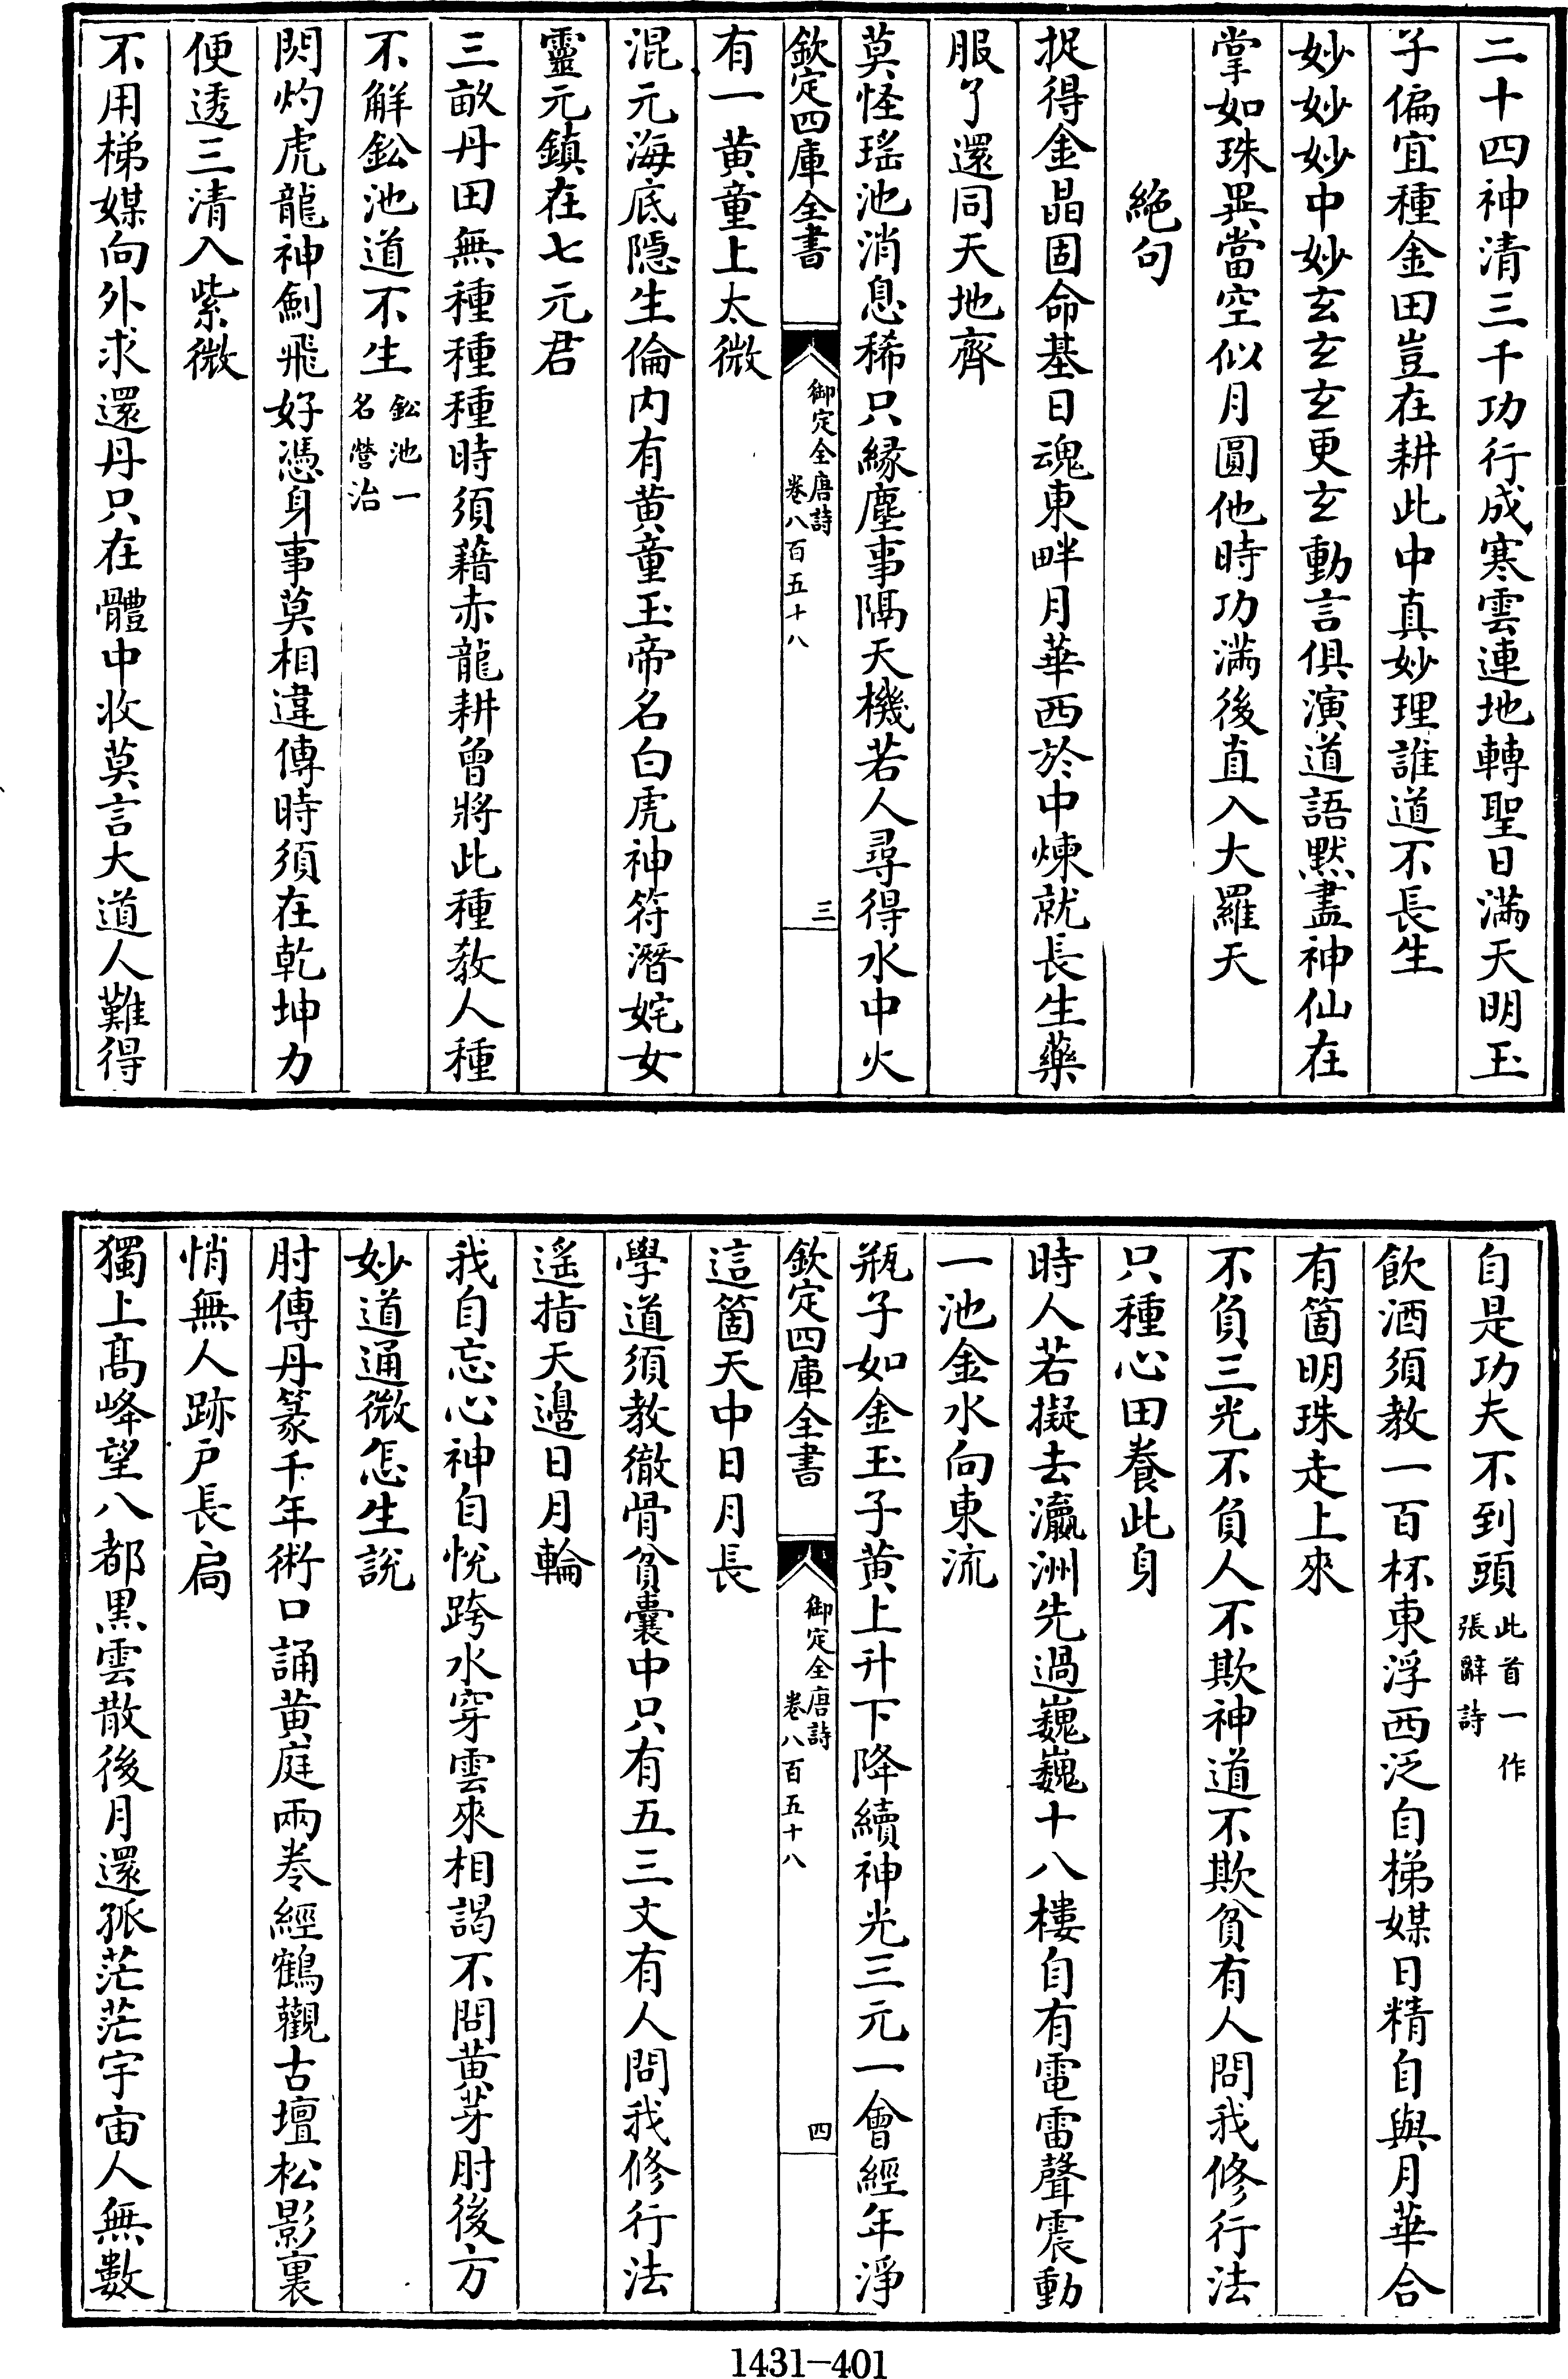 二十四神清三千功行成寒雲連地轉聖日滿天明玉
子偏宜種金田豈在耕此中真妙理誰道不長生
妙妙妙中妙玄玄玄更玄動言俱演道語黙盡神仙在
掌如珠異當空似月圓他時功滿後直入大羅天
絶句
捉得金晶固命基日魂東畔月華西於中煉就長生藥
服了還同天地齊
莫怪瑤池消息稀只緣塵事隔天機若人尋得水中火
欽定四庫全書
御定全唐詩
卷八百五十八
三
有一黄童上太微
混元海底隠生倫内有黄童玉帝名白虎神符潛姹女
靈元鎮在七元君
三畝丹田無種種種時須藉赤龍耕曽將此種教人種
不解鈆池道不生
鈆池一
名營治
閃灼虎龍神劒飛好憑身事莫相違傳時須在乾坤力
便透三清入紫微
不用梯媒向外求還丹只在體中收莫言大道人難得
自是功夫不到頭
此首一作
張辭詩
飲酒須教一百杯東浮西泛自梯媒日精自與月華合
有箇明珠走上來
不負三光不負人不欺神道不欺貧有人問我修行法
只種心田養此身
時人若擬去瀛洲先過巍巍十八樓自有電雷聲震動
一池金水向東流
瓶子如金玉子黄上升下降續神光三元一會經年淨
欽定四庫全書
御定全唐詩
卷八百五十八
四
這箇天中日月長
學道須教徹骨貧囊中只有五三文有人問我修行法
遥指天邉日月輪
我自忘心神自悦跨水穿雲來相謁不問黄芽肘後方
妙道通微怎生說
肘傳丹篆千年術口誦黄庭兩卷經鶴觀古壇松影裏
悄無人跡户長扃
獨上髙峰望八都黒雲散後月還孤茫茫宇宙人無數
1431-401